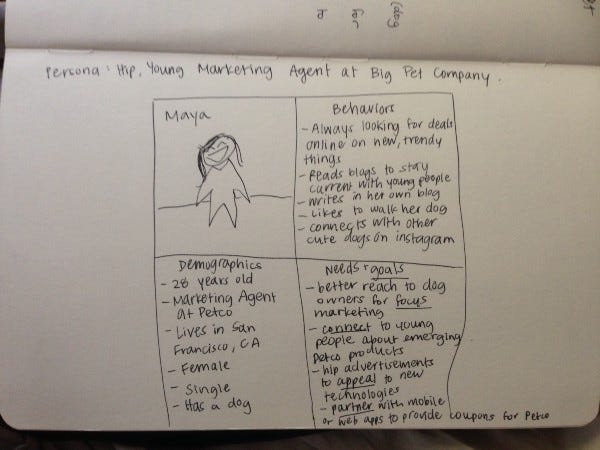 Persona: Hip, Young Marketing Agent at Big Pet Company.
Maya
Behaviors
- Always looking for deals
online on new, trendy
things
- Reads blogs to stay
current with young people
- writes in her own blog
- Likes to walk her dog
- connects with other
cute dogs on instagram
Demographics
- 28 years old
- Marketing Agent
at Petco
- Lives in San
Francisco, CA
- Female
- Single
- Has a dog
Needs + goals
- better reach to dog
owners for focus
marketing
- connect to young
people about emerging
Petco products
- hip advertisements
to appeal to new
technologies
- partner with mobile
or web apps to provide coupons for Petco